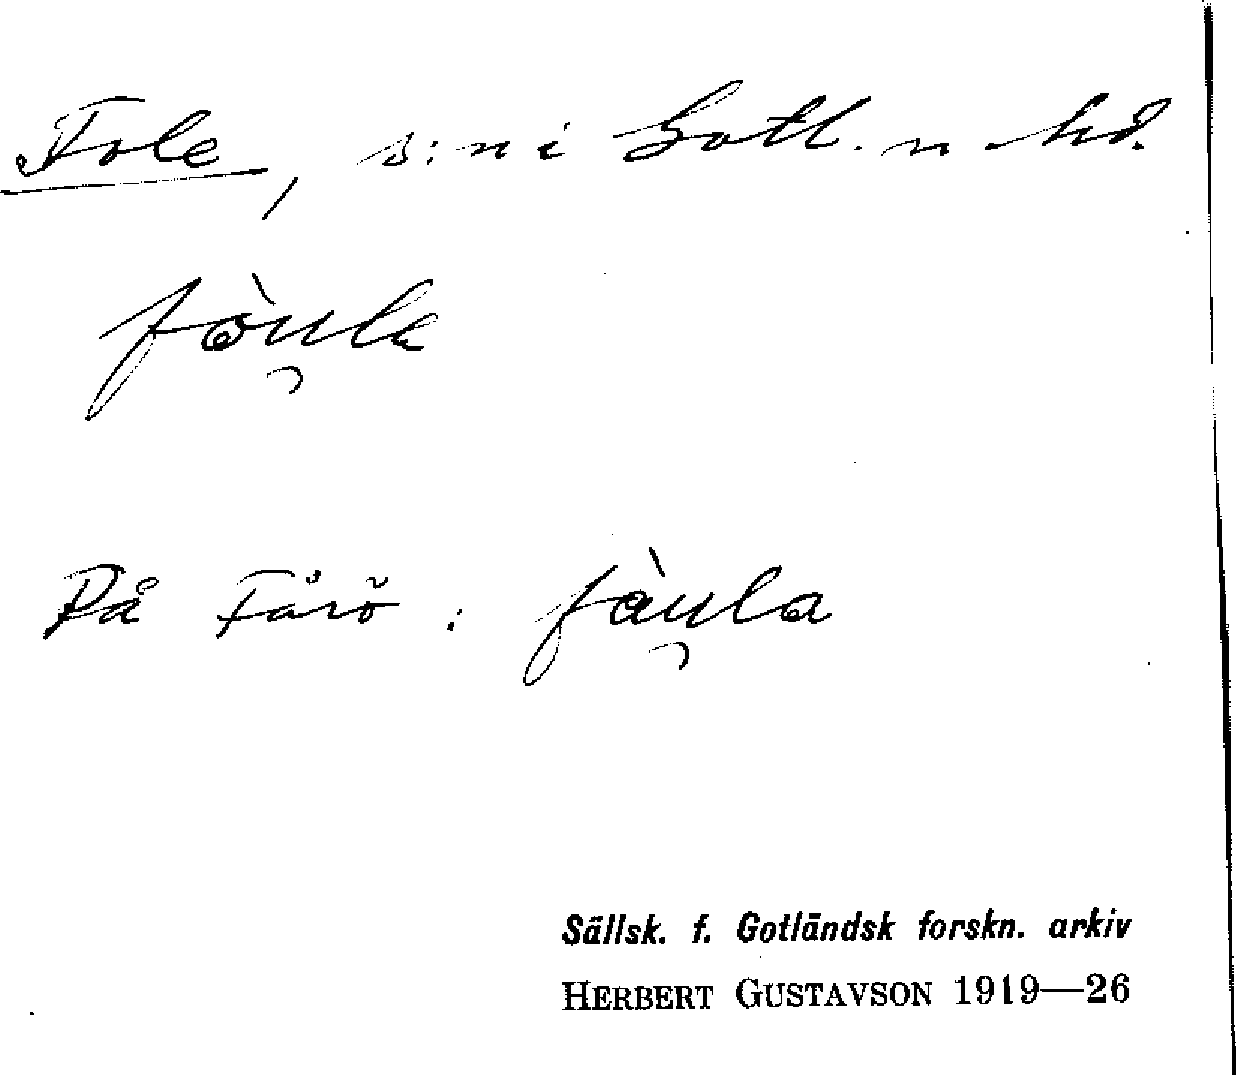 Fole, s:n i Gotl. n hd.
fòu̯le
På Fårö: fàu̯la
Sällsk. f. Gotländsk forskn. arkiv
HERBERT GUSTAVSON 1919—26